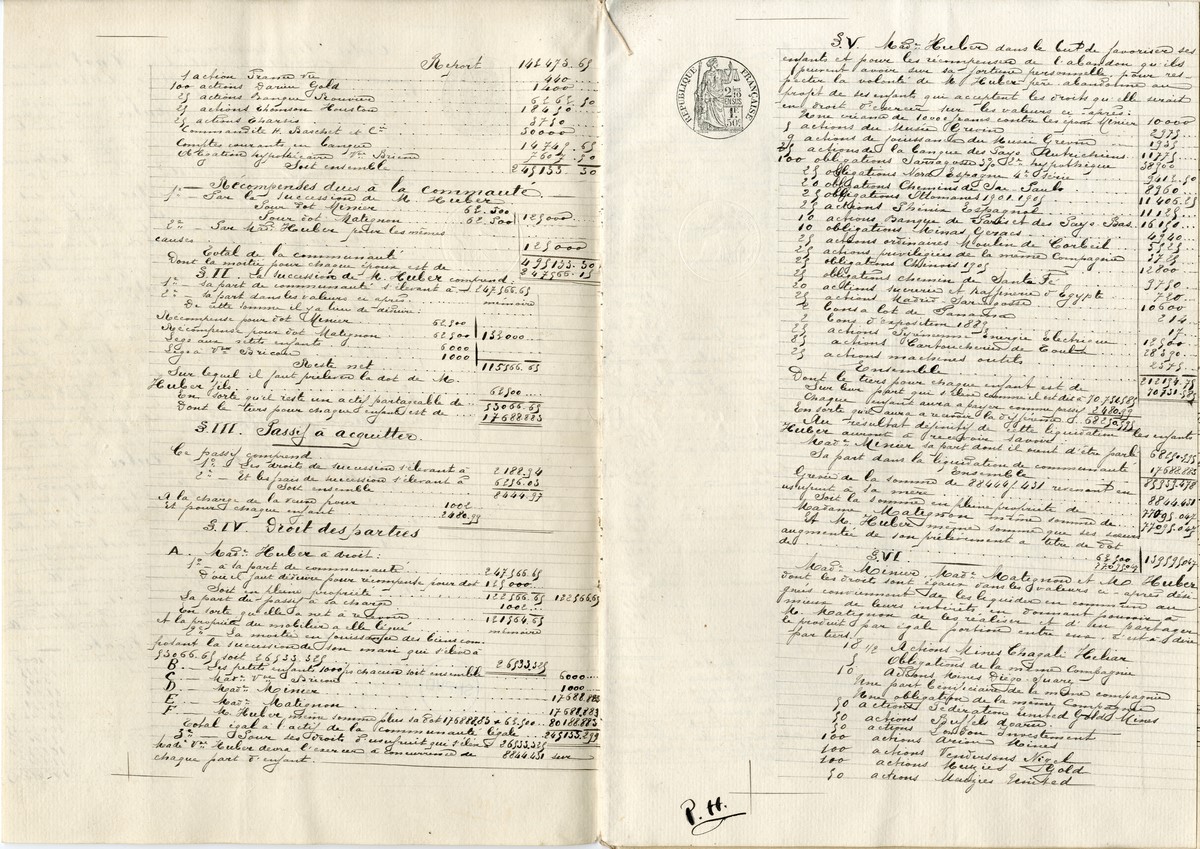 Report 142473.65
1 action France Vie 440
100 actions Darien Gold 1400
25 actions Banque Rouvier 6262.50
25 actions Thomson Houston 18650
25 actions Charsis 3750
Commandite H. Baschet & Cie 50000
Comptes courants en banque 14749.65
Obligation hypothécaire Vve Brion 7607.50
Soit ensemble 245133.30
1o — Récompenses dues à la commauté
1o — Par la succession de M. Huber
Pour dot Minier 62.500
Pour dot Matignon 62.500 125000
2o — Par Mme Huber pour les mêmes
causes 125000
Total de la communauté 495133.30
Dont la moitié pour chaque époux est de 247566.65
§. II. La succession de M. Huber comprend:
1o — sa part de communauté s'élevant à 247566.65
2o — sa part dans les valeurs ci après mémoire
De cette somme il y a lieu de déduire:
Récompense pour dot Minier 62500
Récompense pour dot Matignon 62500 132000
Legs aux petits enfants 6000
Legs à Vve Brion 1000
Reste net 115566.65
Sur lequel il faut prélever la dot de M.
Huber fils 62500
En sorte qu'il reste un actif partageable de 53066.65
Dont le tiers pour chaque enfant est de 17688.883
§. III. Passif à acquitter.
Ce passif comprend
1o Les droits de succession s'élevant à 2188.94
2o Et les frais de succession s'élevant à 6256.03
Soit ensemble 8444.97
A la charge de la veuve pour 1002
Et pour chaque enfant 2480.99
§. IV. Droit des parties
A. Madme Huber a droit:
1o — à sa part de communauté 247566.65
D'ou il faut déduire pour récompense pour dot 125000
Soit en pleine propriété 122566.65 122566.65
Sa part du passif à sa charge 1002
En sorte qu'elle a net à retenir 121564.65
et la propriété du mobilier a elle légué mémoire
2o La moitié en jouissance des biens com
posant la succession de son mari qui s'élève à
53066.65 soit 26533.325 26533.325
B. Les petits enfants 1000fs chacun soit ensemble 6000
C. Madme Vve Brion 1000
D. Madme Minier 17688.883
E. Madme Matignon 17688.883
F. M. Huber même somme plus sa dot 17688883 + 62.500 80188883
Total égal à l'actif de la communauté légale 245133.299
3o — Pour ses droits d'usufruit qui s'élèvent 26533.325
Made Vve Huber devra l'exercer à concurrence de 8844.431 sur
chaque part d'enfant.
RÉPUBLIQUE FRANÇAISE
§. V. Made Huber dans le but de favoriser ses
enfants et pour les récompenser de l'abandon qu'ils
peuvent avoir sur sa fortune personnelle pour res-
pecter la volonté de M. Huber père abandonne au
profit de ses enfants qui acceptent les droits qu'elle serait
en droit d'exercer sur les valeurs ci-après:
Une créance de 10000 francs contre les époux Minier 10000
5 actions du Musée Grévin 2975
9 actions de jouissance du Musée Grévin 1935
25 actions de la banque des Pays Autrichiens 11775
100 obligations Sarragosse 3% 2me hypothèque 38900
25 obligations Nord Espagne 4e série 9412.50
20 obligations Chemins de Sao Paulo 8960
25 obligations Ottomanes 1901.1905 11406.25
25 actions Phénix Espagnol 11125
10 actions Banque de Paris et des Pays Bas 16150
10 obligations Minas Geraes 4940
25 actions ordinaires Moulin de Corbeil 5925
25 actions privilégiées de la même Compagnie 3725
25 obligations Chinois 1905 12800
25 obligations chemin de Santa Fé
20 actions sucrerie et raffinerie d'Egypte 720
25 actions Madrid Sarragosse 10600
2 bons à lot de Panama 214
2 bons d'exposition 1889 17
25 actions Pyrénéenne Energie Electrique 12500
85 actions Cartoucherie de Toulx 28390
25 actions machines outils 2575
Ensemble
Dont le tiers pour chaque enfant est de 70731.585
Sur leur part qui s'élève comme il est dit à 70731585
Chaque enfant aura à payer comme passif 2480.99
En sorte qu'il aura à revenir la différence 68250.595
Au résultat définitif de cette liquidation les enfants
Huber auront à recevoir savoir:
Made Minier sa part dont il vient d'être parlé 68250.595
Sa part dans la liquidation de communauté 17688.883
Ensemble 85939.478
Grevée de la somme de 8844f 431 revenant en
usufruit à sa mère 8844.431
Soit la somme en pleine propriété de 77095.047
Madame Matignon même somme de 77095.047
Et M. Huber même somme que ses sœurs
augmentée de son prélèvement à titre de dot
de 62500 139595047
77095047
§. VI
Made Minier, Made Matignon et M Huber
dont les droits sont égaux dans les valeurs ci-après dési
gnées conviennent de les posséder en commun au
mieux de leurs intérêts en donnant pouvoir à
M. Matignon de les réaliser et d'en partager
le produit par égale portion entre eux. C'est à dire
par tiers.
18 1/2 Actions Mines Chagali Héliar
5 Obligations de la même Compagnie
10 actions Mines Diégo Suarez
Une part bénéficiaire de la même compagnie
Une obligation de la même Compagnie
50 actions Fédération united Gold Mines
50 actions Buffels doorn
50 actions London Investment
100 actions Orion Mines
100 actions Hendersons Nigel
100 actions Menzies Gold
50 actions Menzies United
P. H.